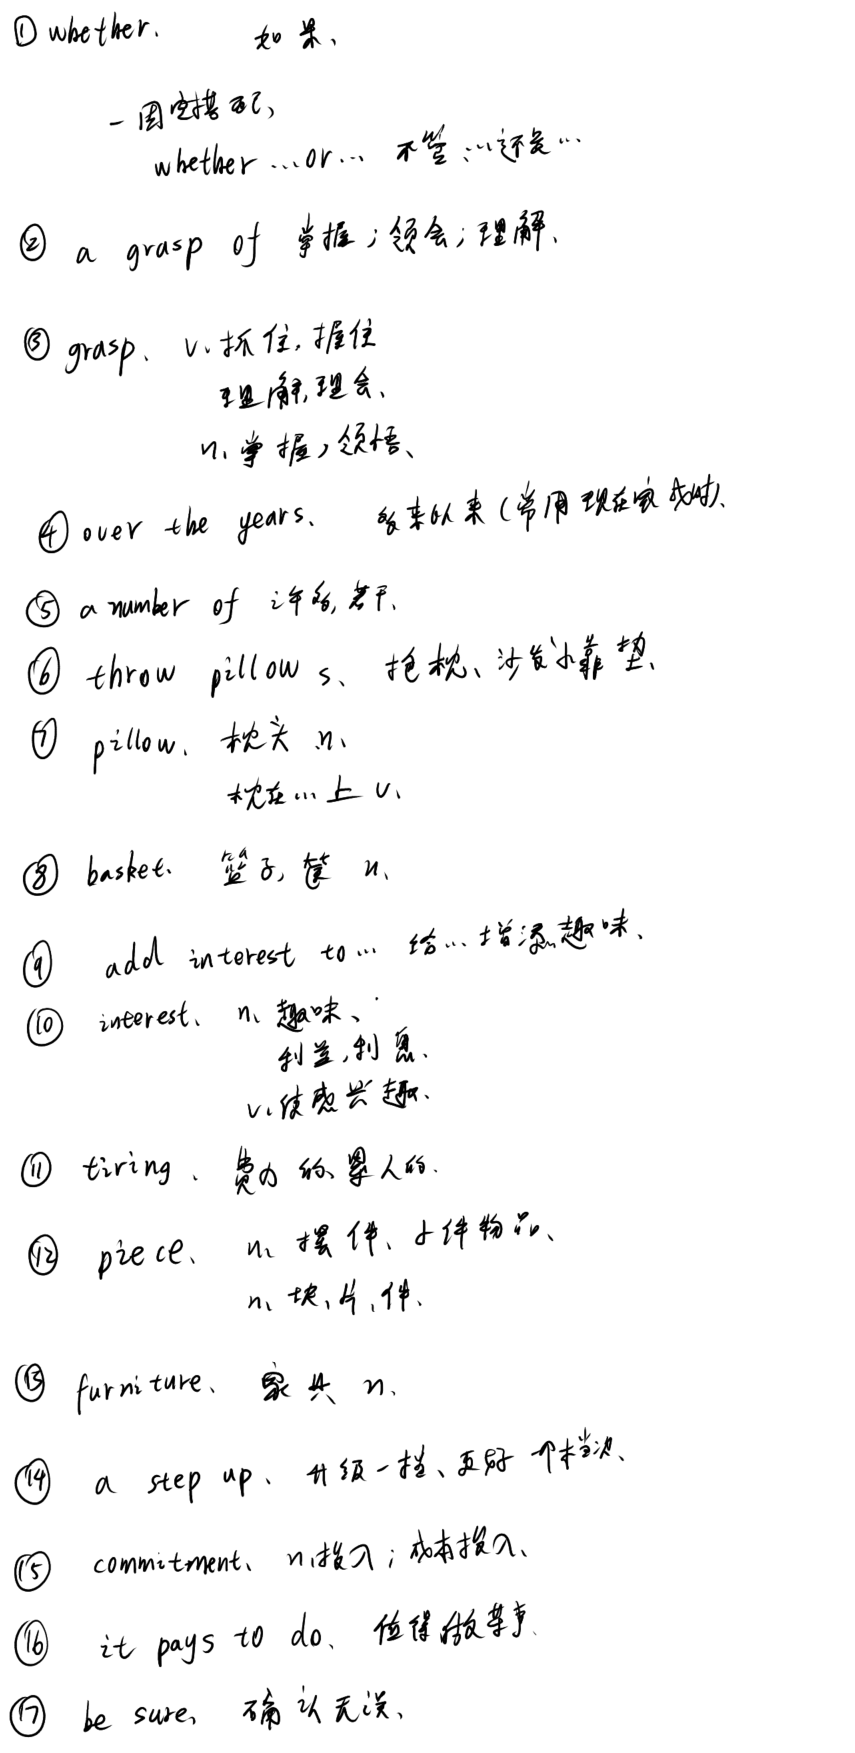 ① whether. 如果、
— 固定搭配、
whether ... or ... 不管 ... 还是 ...
② a grasp of 掌握；领会；理解、
③ grasp、 v、抓住，握住
理解，理会、
n、掌握，领悟、
④ over the years、 多来以来（常用现在完成时）、
⑤ a number of 许多，若干、
⑥ throw pillows、 抱枕、沙发小靠垫、
⑦ pillow、 枕头 n、
枕在...上 v、
⑧ basket. 篮子，筐 n、
⑨ add interest to ... 给...增添趣味、
⑩ interest、 n、趣味、
利益，利息、
v、使感兴趣、
⑪ tiring、 费力的、累人的.
⑫ piece、 n、摆件、小件物品、
n、块、片、件、
⑬ furniture、 家具 n、
⑭ a step up、 升级一档、更好一个档次、
⑮ commitment、 n、投入；成本投入、
⑯ it pays to do、 值得做某事.
⑰ be sure、 确认无误、